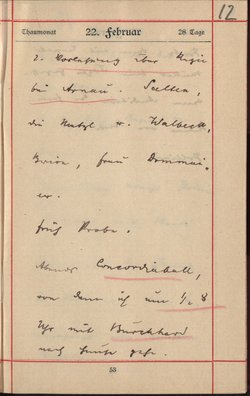 12
Thaumonat 22. Februar 28 Tage
2. Vorlesung über Regie
bei Arnau.
die Hatzl Walbeck,
frau
er.
früh Probe.
Abends Concordiaball,
von dem ich um 1/2 8
Uhr mit Burckhard
nach Hause gehe.
53